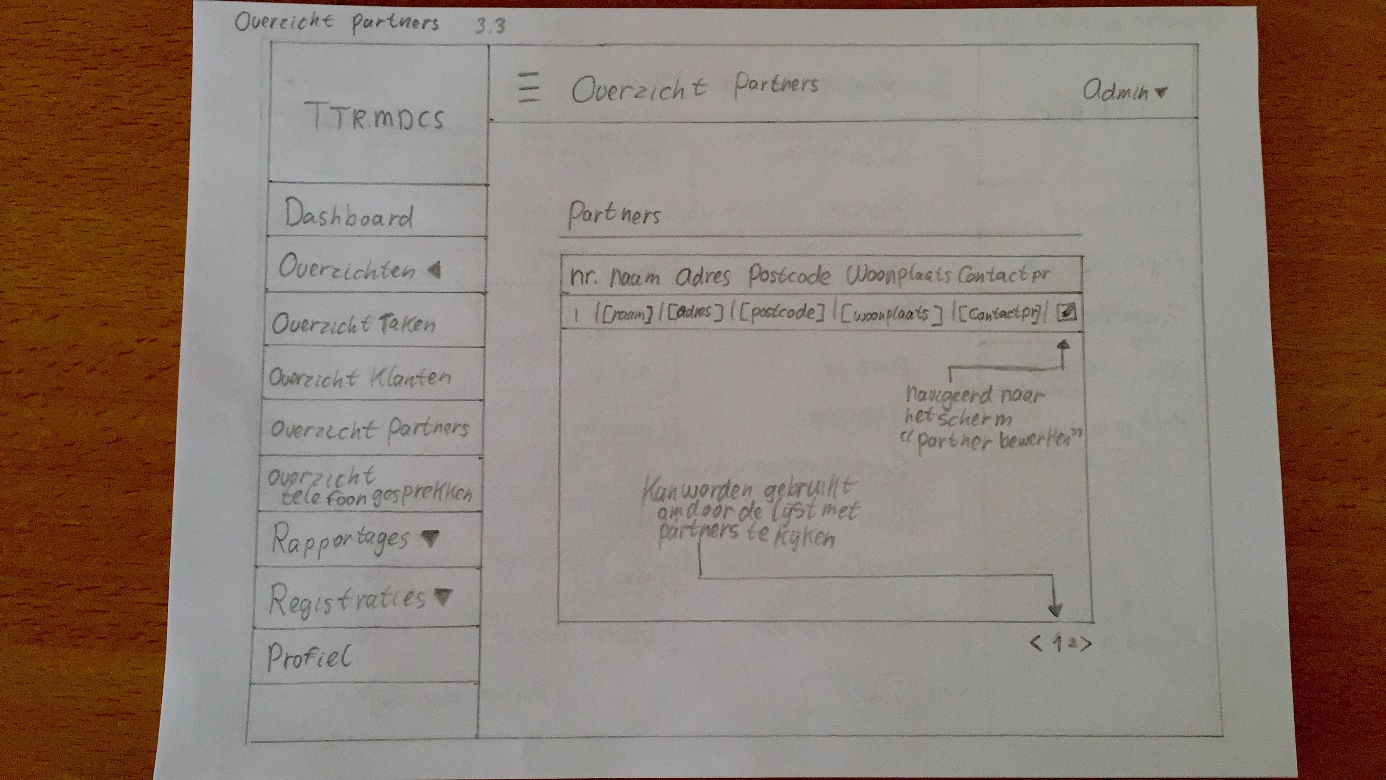 Overzicht partners 3.3
TTRMDCS
Overzicht partners
Admin
Dashboard
Overzichten
Overzicht Taken
Overzicht Klanten
Overzicht partners
overzicht
telefoongesprekken
Rapportages
Registraties
Profiel
Partners
nr. naam adres Postcode Woonplaats Contactpr
1 |[naam]|[adres]|[postcode]|[woonplaats]|[Contactpr]|
navigeerd naar
het scherm
"partner bewerken"
Kan worden gebruikt
om door de lijst met
partners te kijken
< 1 2 >